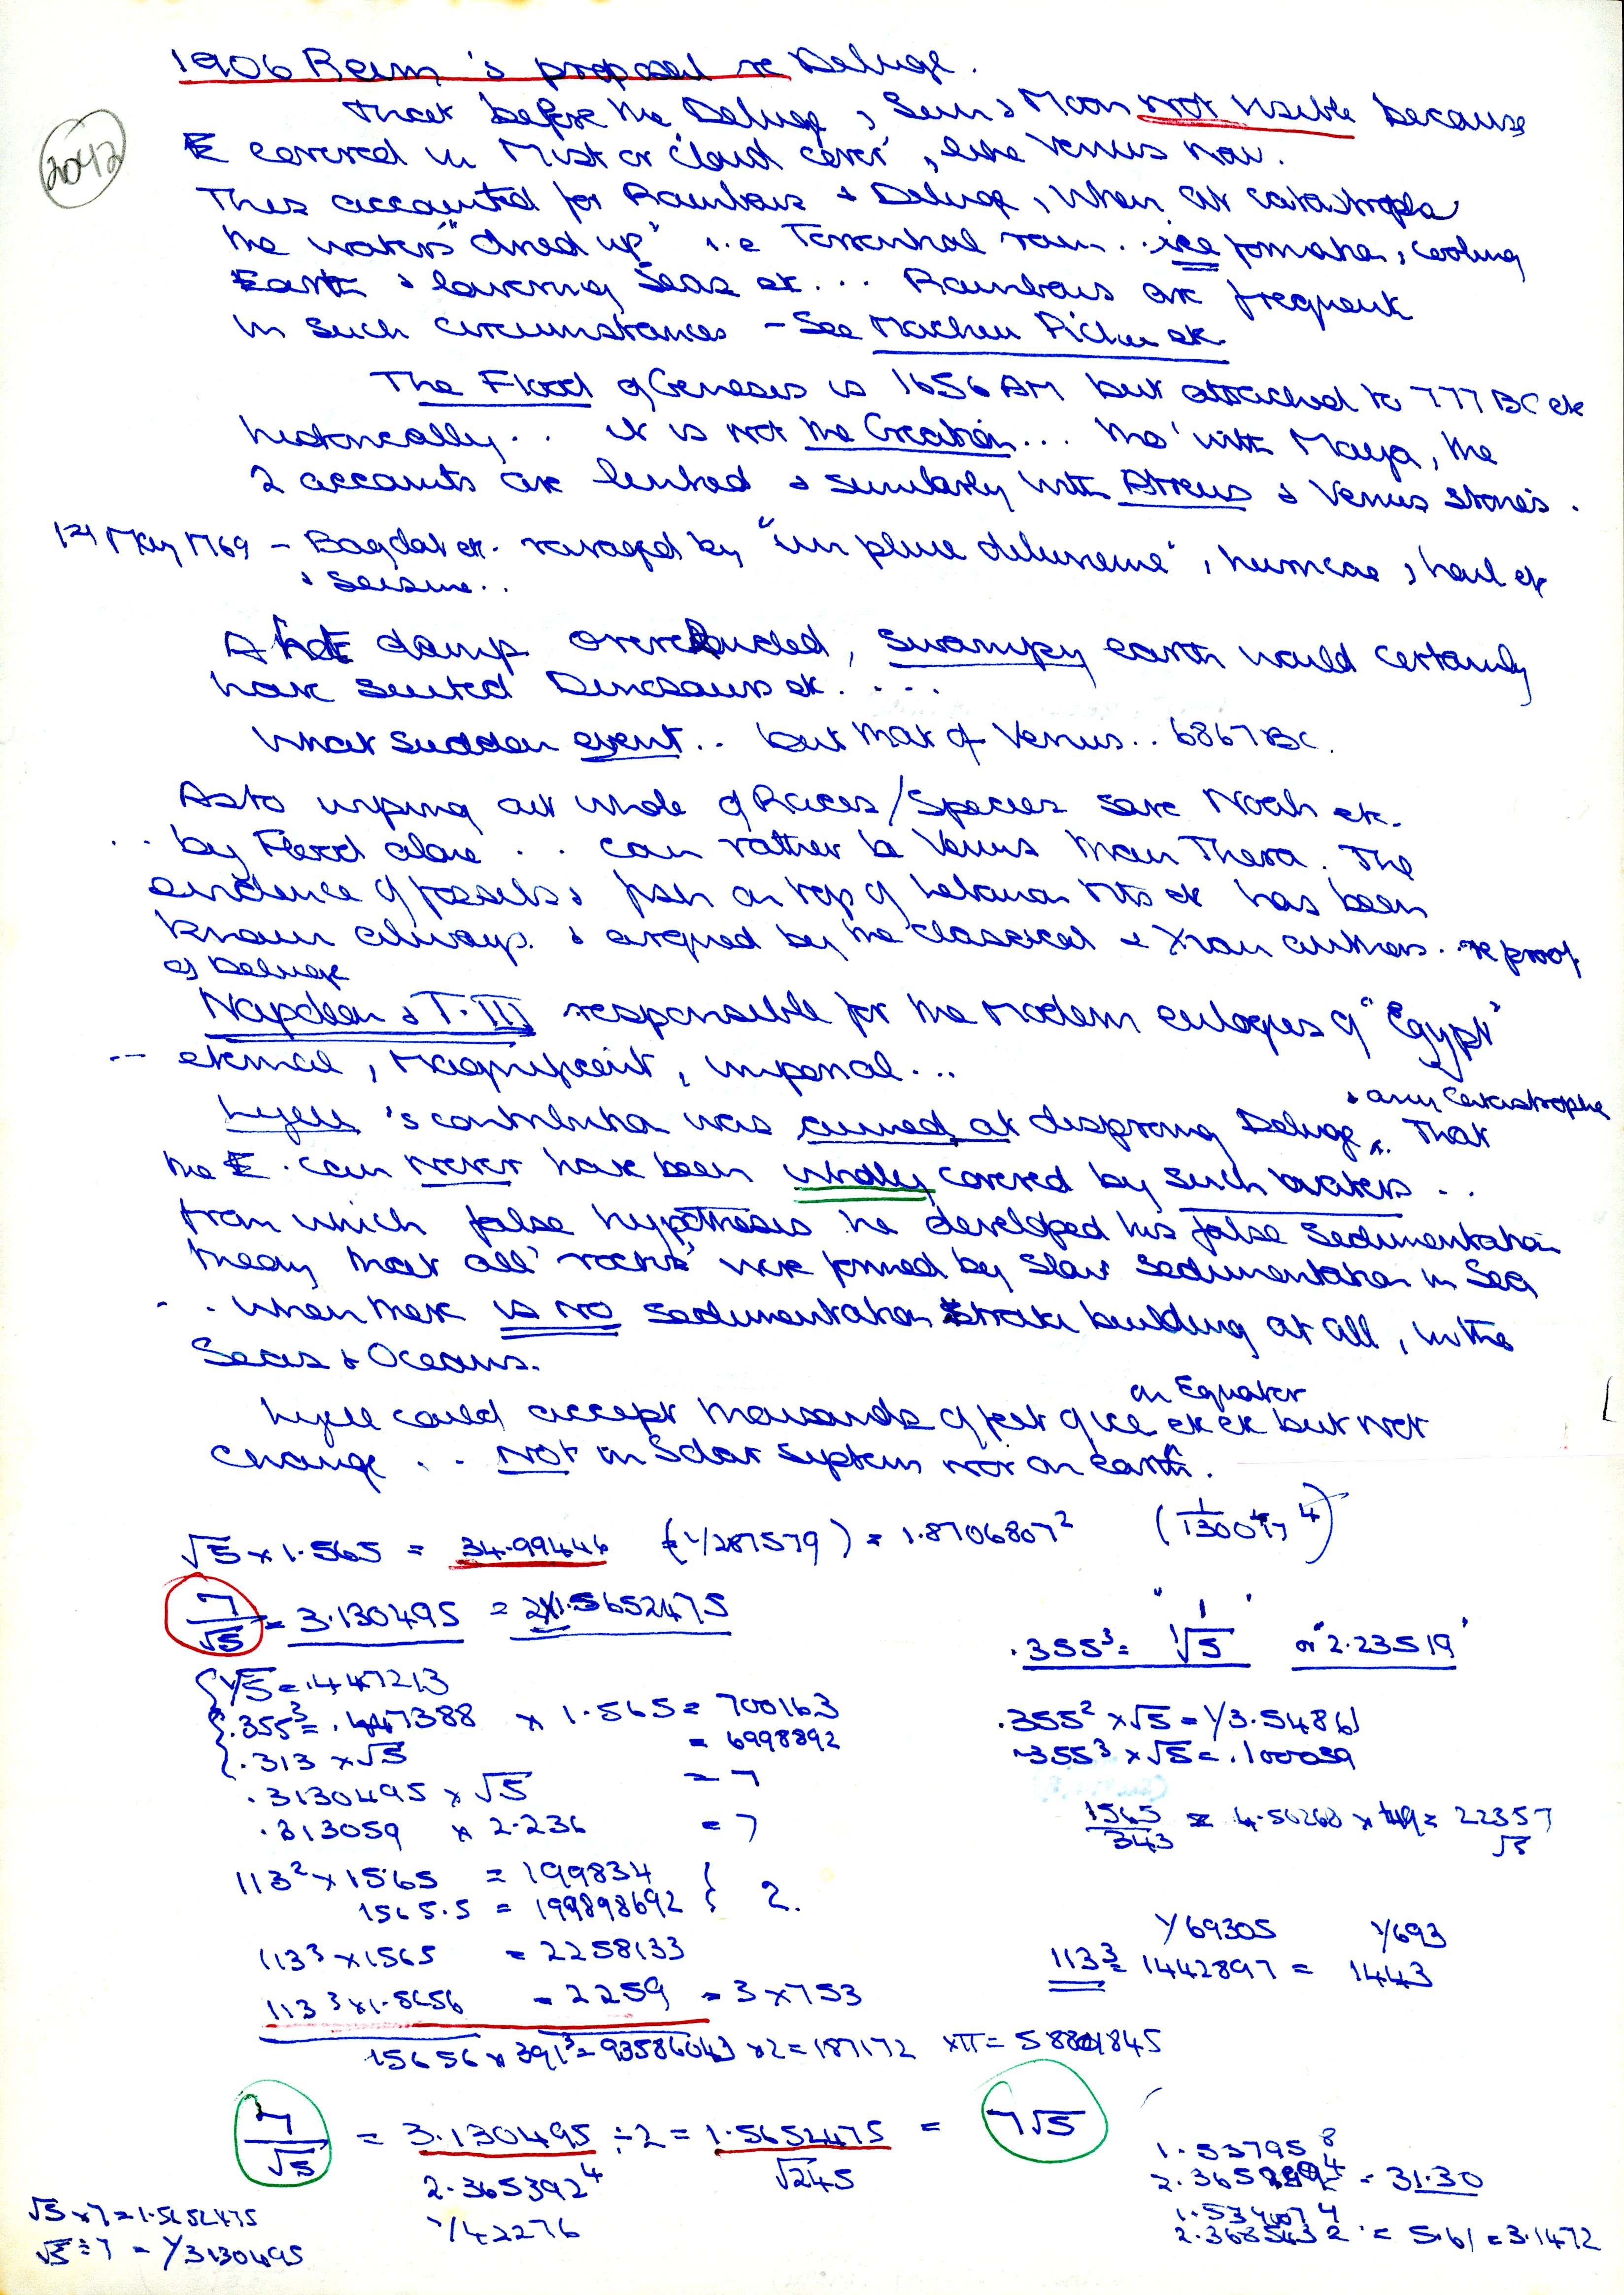 1906 Reim's proposal re Deluge.
2042
That before the Deluge, Sun & Moon not visible because
E covered in Mist or 'cloud cover', like Venus now.
This accounted for Rainbows & Deluge, when at catastrophe
the waters "dried up" i.e Torrential rain.. ice formation, cooling
Earth & lowering Seas etc... Rainbows are frequent
in such circumstances - See Machu Pichu etc.
The Flood of Genesis is 1656 AM but attached to 777 BC etc
historically.. it is not the Creation... tho' with Maya, the
2 accounts are linked & similarly with Atreus & Venus stories.
May 1769 - Bagdat etc. ravaged by "un pluie diluvienne", hurricane, hail etc
& Seisme..
A hot damp overclouded, swampy earth would certainly
have suited Dinosaurs etc.....
What sudden event.. but that of Venus.. 6867 BC.
As to wiping out whole of Races/Species save Noah etc.
.. by Flood alone .. can rather be Venus than Thera. The
evidence of fossils & fish on top of Mts etc has been
known always & argued by the Classical & Xian authors.. re proof
of Deluge
Napoleon & T.III responsible for the Modern eulogies of "Egypt"
-- eternal, Magnificent, imperial...
Lyell's contribution was aimed at disproving Deluge & any Catastrophe. That
the E. can never have been wholly covered by such waters ..
from which false hypothesis he developed his false sedimentation
theory that all 'rocks' were formed by slow sedimentation in Sea
.. when there is no sedimentation strata building at all, in the
Seas & Oceans.
Lyell could accept thousands of feet of ice on Equator etc etc but not
change .. Not in Solar System nor on earth.
√5 x 1.565 = 34.99446 (= 1/287579) = 1.8706807²
7/√5 = 3.130495 = 2x1.5652475
.355³ = 1/√5 or 2.23519
{1/√5 = .447213
{.355³ = .447388 x 1.565 = 700163
{.313 x √5 = 6998892
.3130495 x √5 = 7
.313059 x 2.236 = 7
.355² x √5 = 1/3.54861
.355³ x √5 = .100059
1565/343 = 4.56268 x 49 = 22357
√5
113² x 1565 = 199834 }
1565.5 = 199898692 } 2.
113³ x 1565 = 2258133
113³ x 1.5656 = 2259 = 3 x 753
1/69305 1/693
113³ = 1442897 = 1443
15656 x 391³ = 93586043 x 2 = 187172 xπ = 58801845
7/√5 = 3.130495 ÷ 2 = 1.5652475 = 7√5
2.365392⁴ √245
1/42276
1.53795⁸
= 31.30
= 5.61 = 3.1472
√5 x 7 = 1.5652475
√5 ÷ 7 = 1/3130495